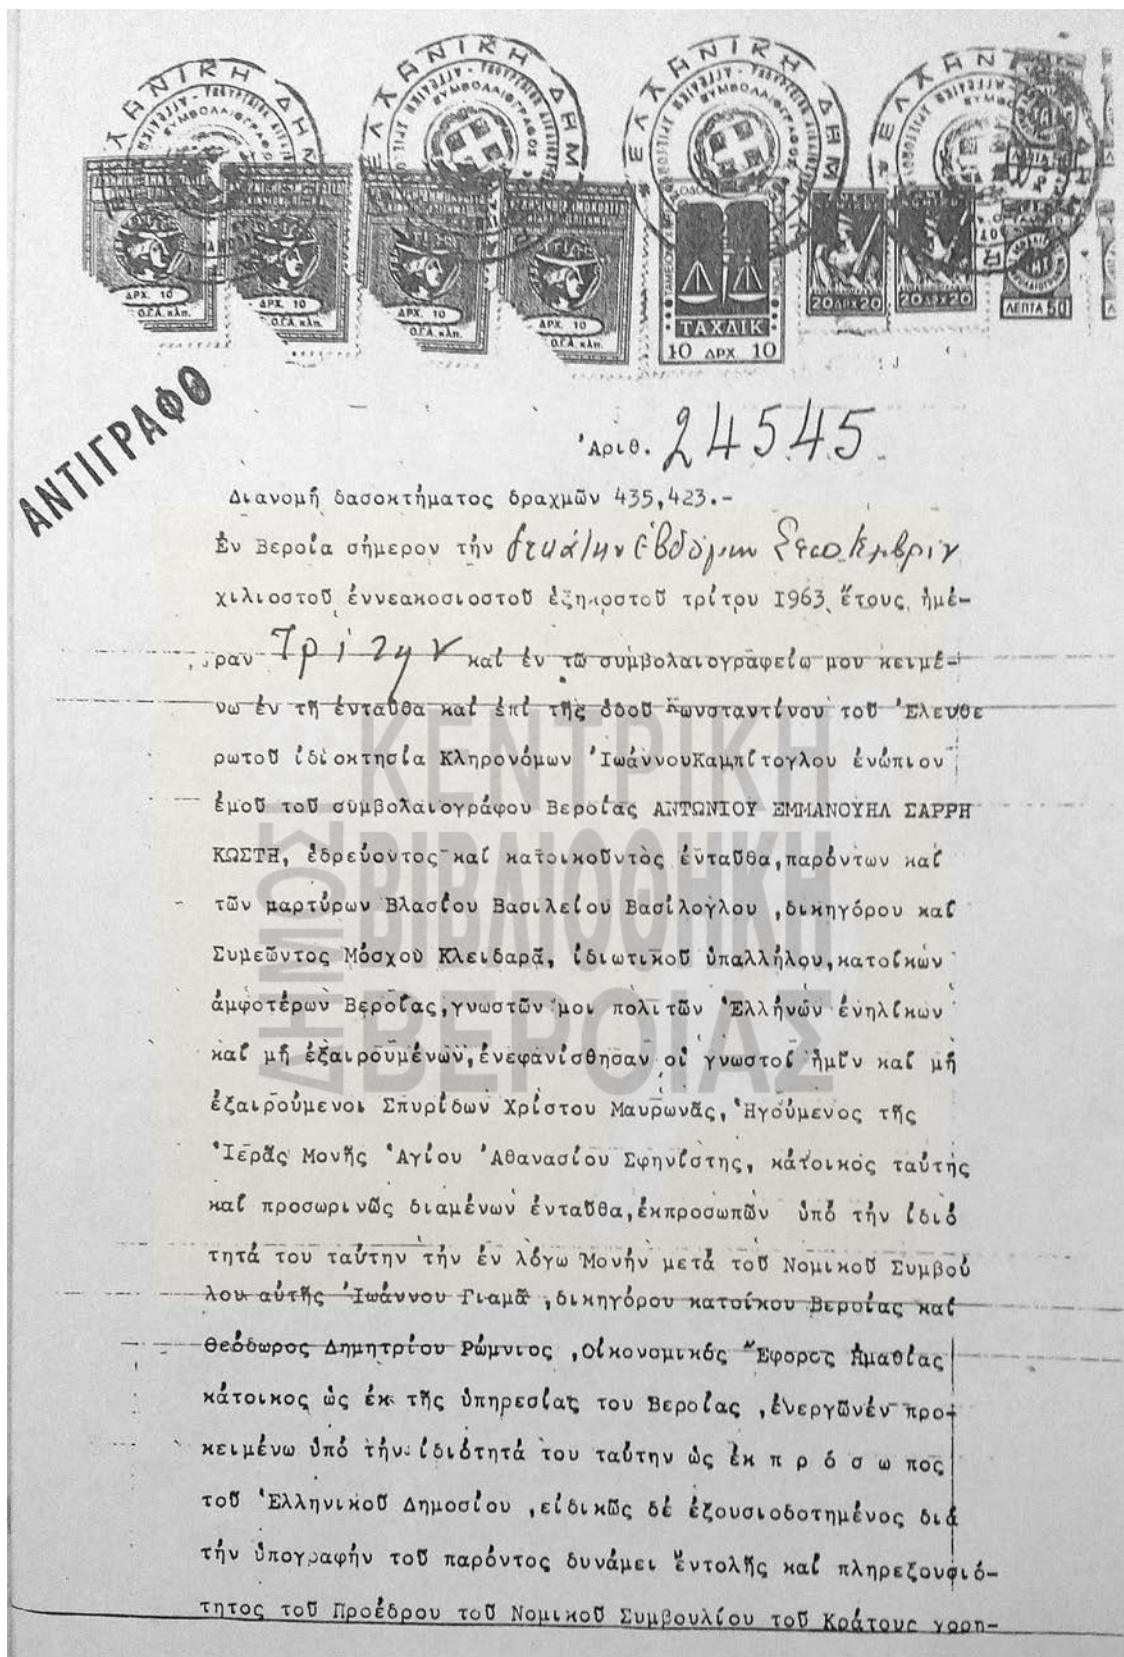 ΕΛΛΗΝΙΚΗ ΔΗΜ
ΣΥΜΒΟΛΑΙΟΓΡΑΦΟΣ
ΔΡΧ. 10
Ο.Γ.Α. κλπ.
ΔΡΧ. 10
Ο.Γ.Α. κλπ.
ΔΡΧ. 10
Ο.Γ.Α. κλπ.
ΔΡΧ. 10
Ο.Γ.Α. κλπ.
ΤΑΧΔΙΚ
10 ΔΡΧ. 10
20ΔΡΧ20
20ΔΡΧ20
ΛΕΠΤΑ 50
ΑΝΤΙΓΡΑΦΟ
Ἀριθ. 24545
Διανομή δασοκτήματος δραχμῶν 435,423.-
Ἐν Βεροίᾳ σήμερον τήν δεκάτην ἑβδόμην Σεπτεμβρίου
χιλιοστοῦ ἐννεακοσιοστοῦ ἑξηκοστοῦ τρίτου 1963 ἔτους, ἡμέ-
ραν Τρίτην καί ἐν τῶ συμβολαιογραφείω μου κειμέ-
νω ἐν τῆ ἐνταῦθα καί ἐπί τῆς ὁδοῦ Κωνσταντίνου τοῦ Ἐλευθε
ρωτοῦ ἰδιοκτησία Κληρονόμων ἸωάννουΚαμπίτογλου ἐνώπιον
ἐμοῦ τοῦ συμβολαιογράφου Βεροίας ΑΝΤΩΝΙΟΥ ΕΜΜΑΝΟΥΗΛ ΣΑΡΡΗ
ΚΩΣΤΗ, ἑδρεύοντος καί κατοικοῦντος ἐνταῦθα,παρόντων καί
τῶν μαρτύρων Βλασίου Βασιλείου Βασίλογλου ,δικηγόρου καί
Συμεῶντος Μόσχου Κλειδαρᾶ, ἰδιωτικοῦ ὑπαλλήλου,κατοίκων
ἀμφοτέρων Βεροίας,γνωστῶν μοι πολιτῶν Ἑλλήνων ἐνηλίκων
καί μή ἐξαιρουμένων,ἐνεφανίσθησαν οἱ γνωστοί ἡμῖν καί μή
ἐξαιρούμενοι Σπυρίδων Χρίστου Μαυρωνᾶς, Ἡγούμενος τῆς
Ἱερᾶς Μονῆς Ἁγίου Ἀθανασίου Σφηνίστης, κάτοικος ταύτης
καί προσωρινῶς διαμένων ἐνταῦθα,ἐκπροσωπῶν ὑπό τήν ἰδιό
τητά του ταύτην τήν ἐν λόγω Μονήν μετά τοῦ Νομικοῦ Συμβού
λου αὐτῆς Ἰωάννου Γιαμᾶ ,δικηγόρου κατοίκου Βεροίας καί
Θεόδωρος Δημητρίου Ρώμνιος ,Οἰκονομικός Ἔφορος Ἠμαθίας
κάτοικος ὡς ἐκ τῆς ὑπηρεσίας του Βεροίας ,ἐνεργῶνἐν προ-
κειμένω ὑπό τήν ἰδιότητά του ταύτην ὡς ἐκ π ρ ό σ ω πος
τοῦ Ἑλληνικοῦ Δημοσίου ,εἰδικῶς δέ ἐξουσιοδοτημένος διά
τήν ὑπογραφήν τοῦ παρόντος δυνάμει ἐντολῆς καί πληρεξουσιό-
τητος τοῦ Προέδρου τοῦ Νομικοῦ Συμβουλίου τοῦ Κράτους χορη-
ΔΗΜΟΣΙΑ
ΚΕΝΤΡΙΚΗ
ΒΙΒΛΙΟΘΗΚΗ
ΒΕΡΟΙΑΣ